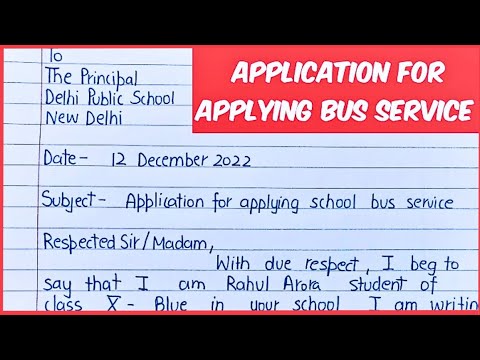 APPLICATION FOR
APPLYING BUS SERVICE
To
The Principal
Delhi Public School
New Delhi
Date- 12 December 2022
Subject- Application for applying school bus service
Respected Sir/Madam,
With due respect, I beg to
say that I am Rahul Arora student of
class X - Blue in your school I am writing